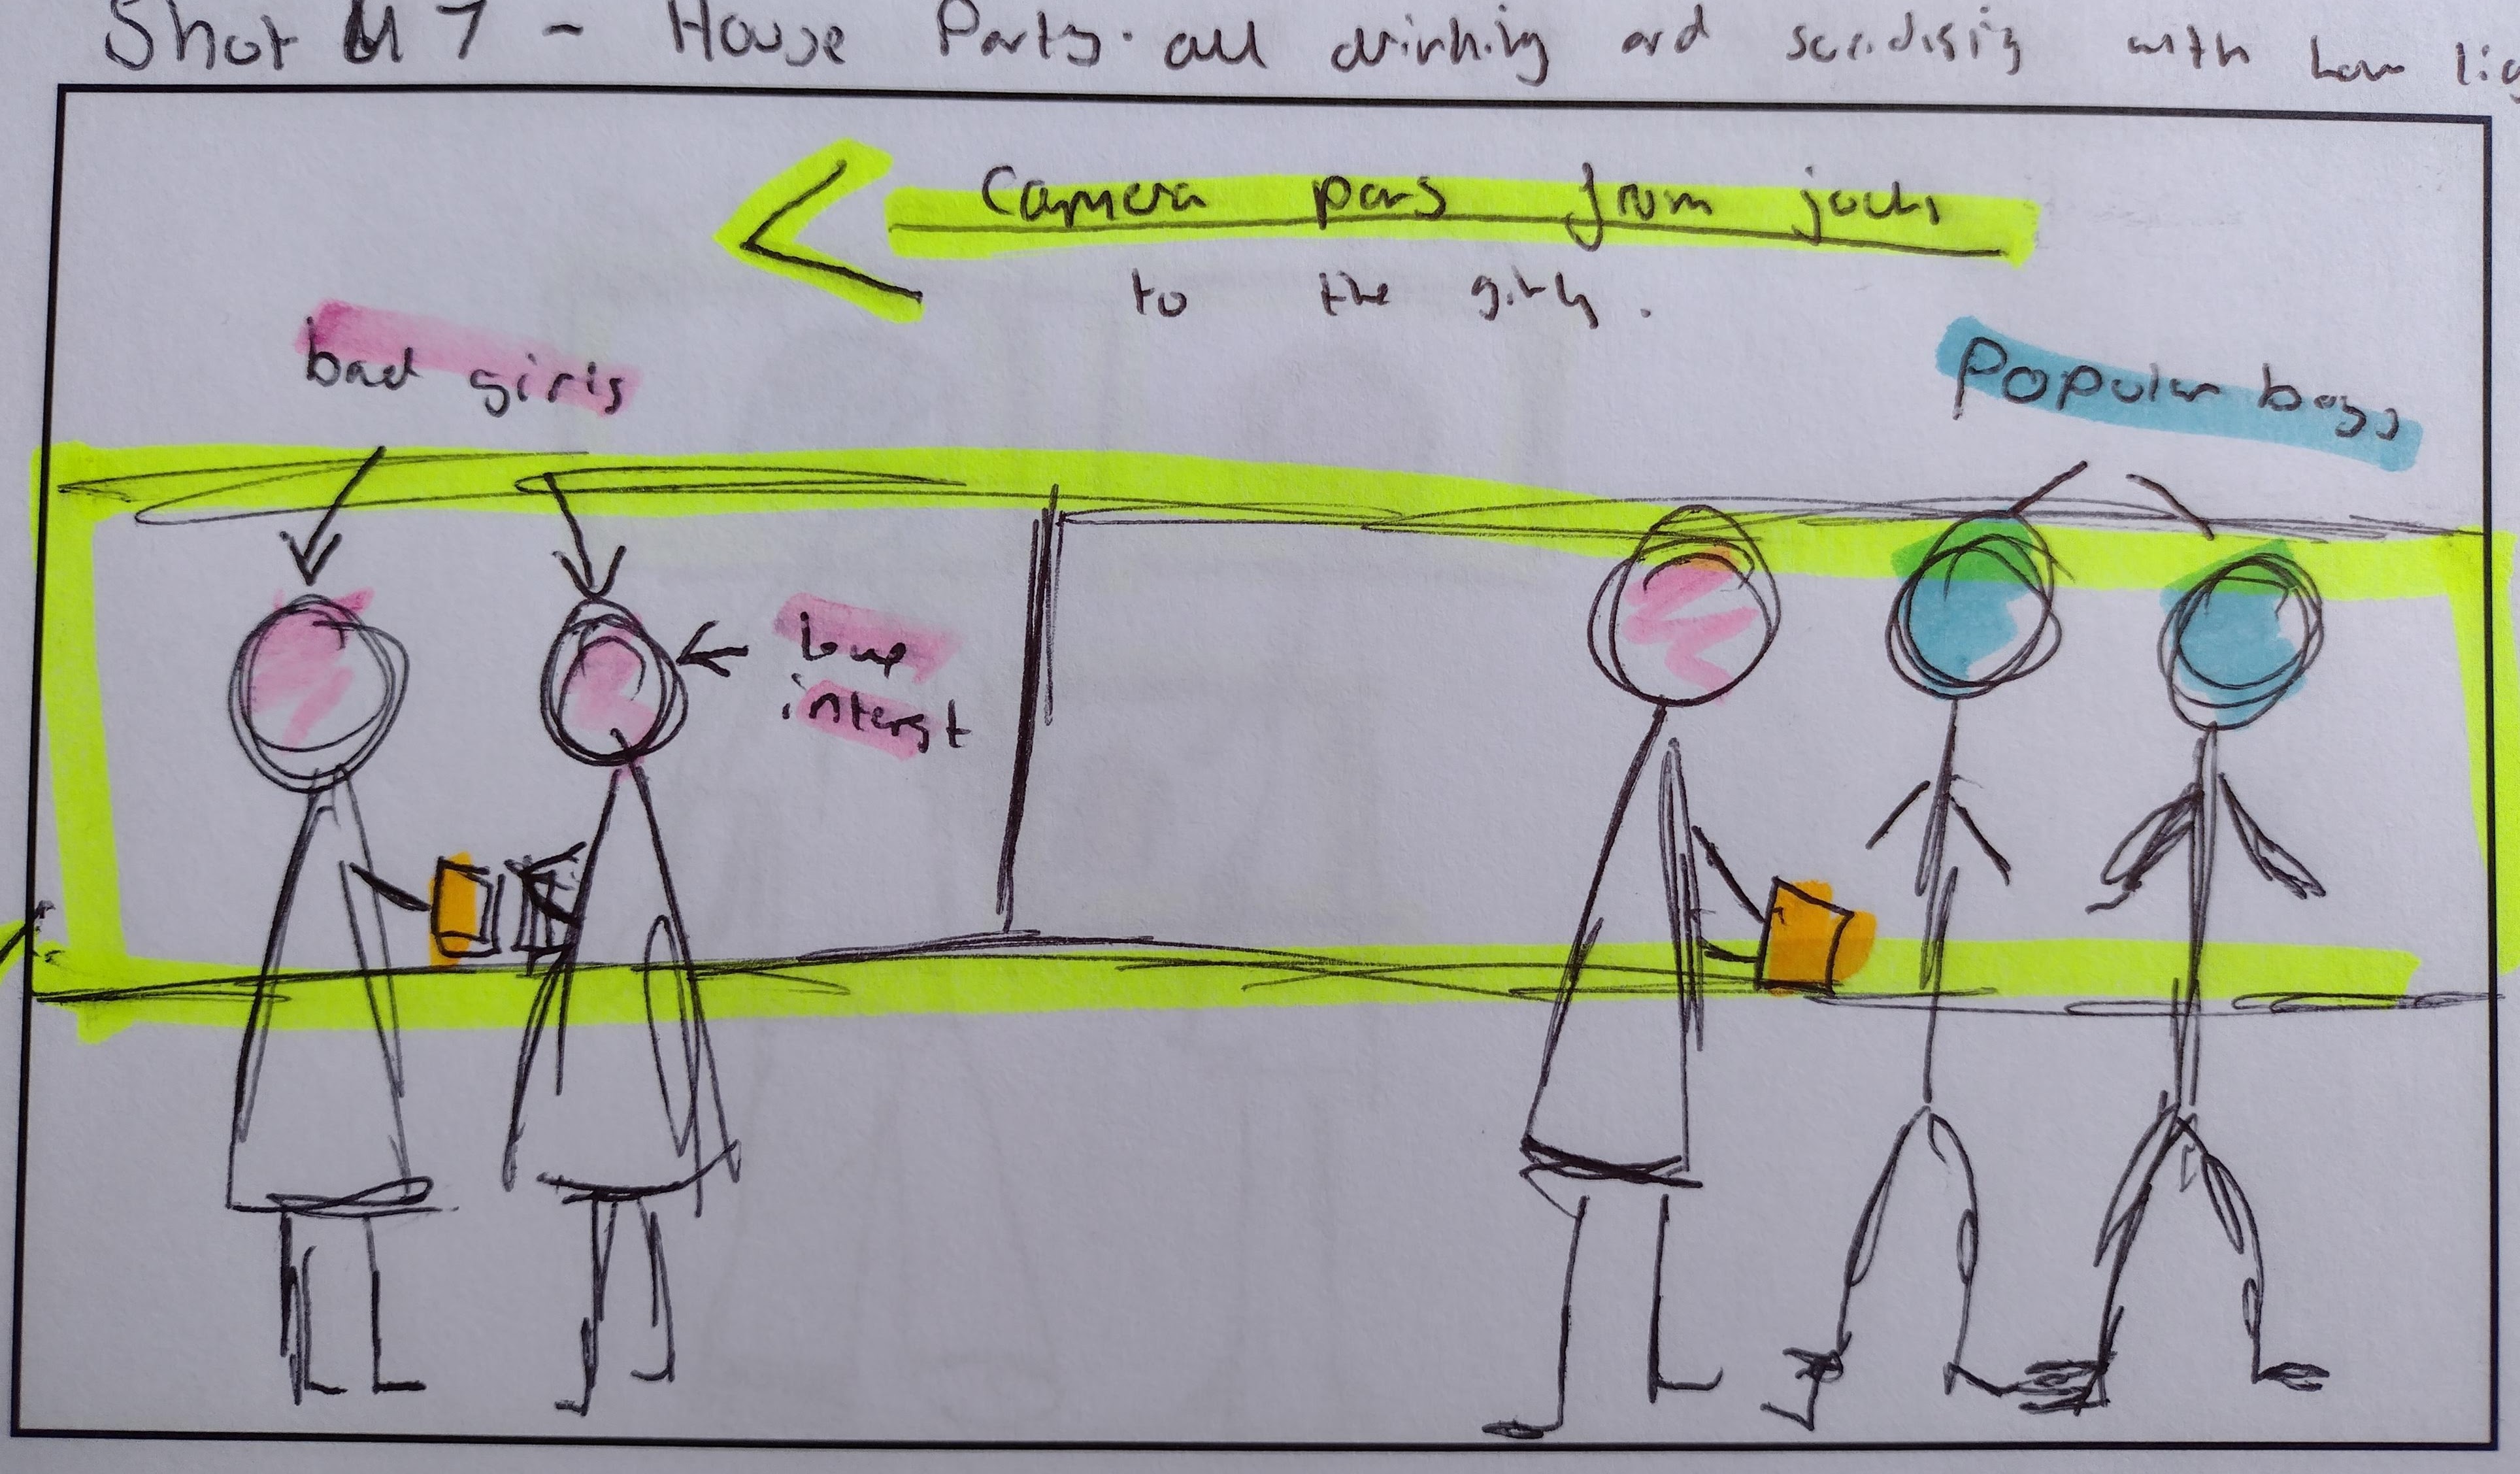 Shot 7 - House Party. all drinking and socialising with low
Camera pans from jocks
to the girls.
bad girls
Popular boys
Love
interest